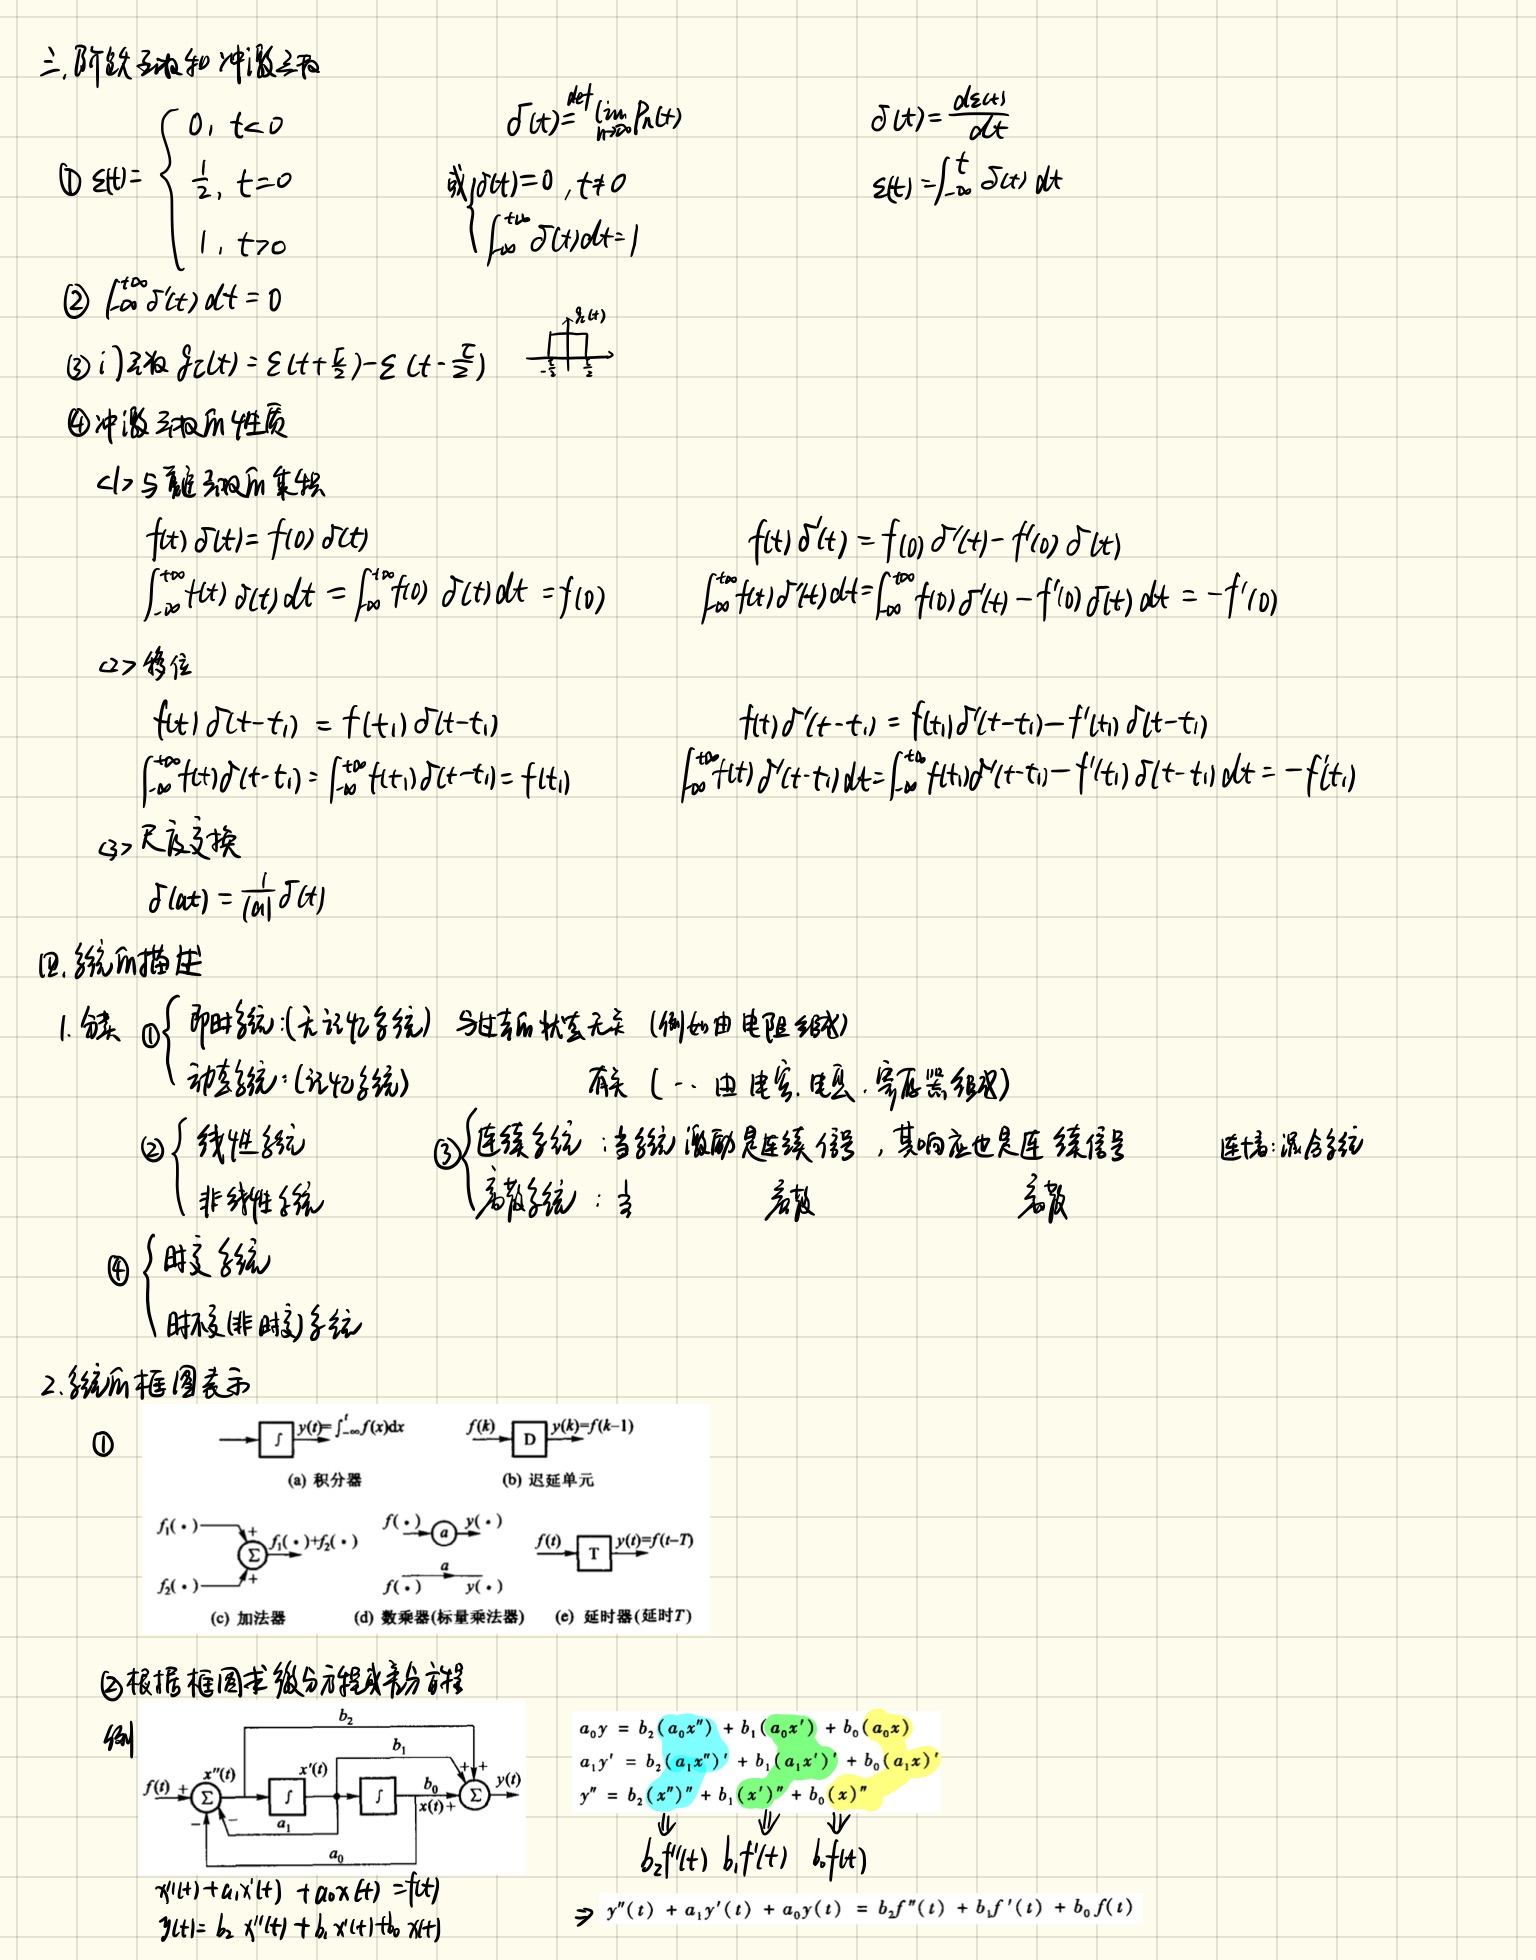 三.阶跃函数和冲激函数
① ε(t)= { 0, t<0
1/2, t=0
1, t>0
δ(t) =^{def} lim_{n→∞} Pn(t)
或 { δ(t)=0, t≠0
∫_{-∞}^{+∞} δ(t)dt=1
δ(t)= dε(t)/dt
ε(t)=∫_{-∞}^{t} δ(t) dt
② ∫_{-∞}^{+∞} δ'(t) dt = 0
③ 门函数 gτ(t) = ε(t+τ/2)-ε(t-τ/2)
gτ(t)
-τ/2 τ/2
④冲激函数的性质
<1> 与普通函数的乘积
f(t) δ(t)= f(0) δ(t)
∫_{-∞}^{+∞} f(t) δ(t) dt = ∫_{-∞}^{+∞} f(0) δ(t) dt = f(0)
f(t) δ'(t) = f(0) δ'(t) - f'(0) δ(t)
∫_{-∞}^{+∞} f(t) δ'(t) dt = ∫_{-∞}^{+∞} f(0) δ'(t) - f'(0) δ(t) dt = -f'(0)
<2> 移位
f(t) δ(t-t₁) = f(t₁) δ(t-t₁)
∫_{-∞}^{+∞} f(t) δ(t-t₁) = ∫_{-∞}^{+∞} f(t₁) δ(t-t₁) = f(t₁)
f(t) δ'(t-t₁) = f(t₁) δ'(t-t₁) - f'(t₁) δ(t-t₁)
∫_{-∞}^{+∞} f(t) δ'(t-t₁) dt = ∫_{-∞}^{+∞} f(t₁) δ'(t-t₁) - f'(t₁) δ(t-t₁) dt = -f'(t₁)
<3> 尺度变换
δ(at) = 1/|a| δ(t)
四.系统的描述
1. 分类 ① { 即时系统:(无记忆系统) 与过去的状态无关 (例如由电阻组成)
动态系统:(记忆系统) 有关 (... 由电容.电感.寄存器组成)
② { 线性系统
非线性系统
③ { 连续系统:当系统激励是连续信号,其响应也是连续信号
离散系统:当 离散 离散
连+离:混合系统
④ { 时变系统
时不变(非时变)系统
2.系统的框图表示
①
∫ y(t)=∫_{-∞}^{t} f(x)dx
(a) 积分器
f(k) D y(k)=f(k-1)
(b) 迟延单元
f₁(·) + Σ f₁(·)+f₂(·)
f₂(·) +
(c) 加法器
f(·) a y(·)
f(·) a y(·)
(d) 数乘器(标量乘法器)
f(t) T y(t)=f(t-T)
(e) 延时器(延时T)
②根据框图求微分方程或差分方程
例
b₂
b₁
f(t) + Σ x''(t) ∫ x'(t) ∫ b₀ x(t) + + + Σ y(t)
- - a₁
a₀
x''(t)+a₁x'(t)+a₀x(t)=f(t)
y(t)=b₂x''(t)+b₁x'(t)+b₀x(t)
a₀y = b₂(a₀x'') + b₁(a₀x') + b₀(a₀x)
a₁y' = b₂(a₁x'')' + b₁(a₁x')' + b₀(a₁x)'
y'' = b₂(x'')'' + b₁(x')'' + b₀(x)''
⇓ ⇓ ⇓
b₂f''(t) b₁f'(t) b₀f(t)
⇒ y''(t) + a₁y'(t) + a₀y(t) = b₂f''(t) + b₁f'(t) + b₀f(t)